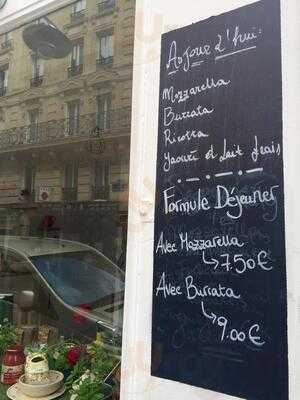 Aujour d'hui:
Mozzarella
Burrata
Ricotta
Yaourt et lait frais
Formule Déjeuner
Avec Mozzarella
↳7.50€
Avec Burrata
↳9.00€